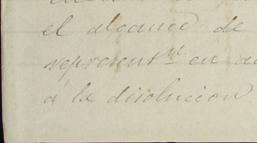 el alcance de
represent.te en
á la disolucion